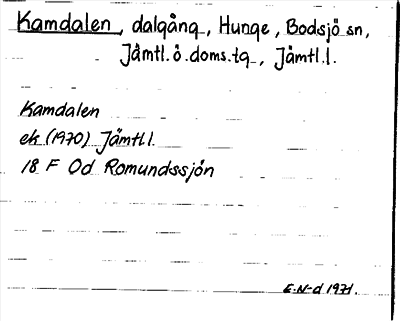 Kamdalen, dalgång, Hunge, Bodsjö sn,
Jämtl.ö.doms.tg, Jämtl.l.
Kamdalen
ek (1970) Jämtl l.
18 F Od Romundssjön
E.N-d 1971.